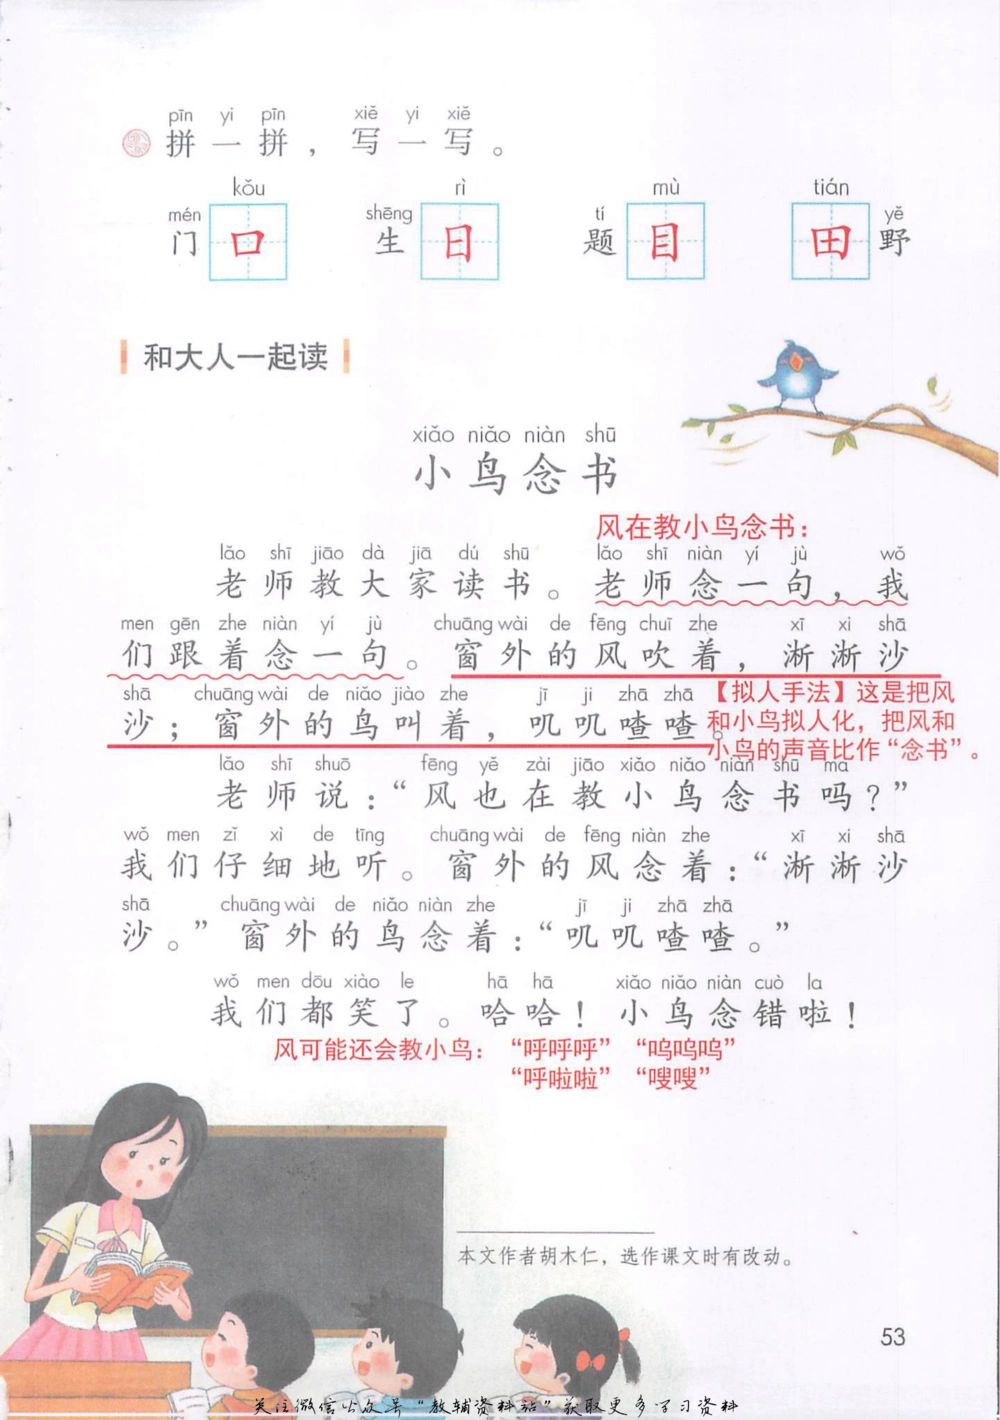 pīn yi pīn xiě yi xiě
拼一拼，写一写。
kǒu rì mù tián
mén shēng tí yě
门口 生日 题目 田野
和大人一起读
xiǎo niǎo niàn shū
小鸟念书
风在教小鸟念书：
lǎo shī jiāo dà jiā dú shū lǎo shī niàn yí jù wǒ
老师教大家读书。老师念一句，我
men gēn zhe niàn yí jù chuāng wài de fēng chuī zhe xī xi shā
们跟着念一句。窗外的风吹着，淅淅沙
shā chuāng wài de niǎo jiào zhe jī ji zhā zhā
沙；窗外的鸟叫着，叽叽喳喳。
【拟人手法】这是把风
和小鸟拟人化，把风和
小鸟的声音比作“念书”。
lǎo shī shuō fēng yě zài jiāo xiǎo niǎo niàn shū ma
老师说：“风也在教小鸟念书吗？”
wǒ men zǐ xì de tīng chuāng wài de fēng niàn zhe xī xi shā
我们仔细地听。窗外的风念着：“淅淅沙
shā chuāng wài de niǎo niàn zhe jī ji zhā zhā
沙。”窗外的鸟念着：“叽叽喳喳。”
wǒ men dōu xiào le hā hā xiǎo niǎo niàn cuò la
我们都笑了。哈哈！小鸟念错啦！
风可能还会教小鸟：“呼呼呼” “呜呜呜”
“呼啦啦” “嗖嗖”
本文作者胡木仁，选作课文时有改动。
53
关注微信公众号“教辅资料站”获取更多学习资料